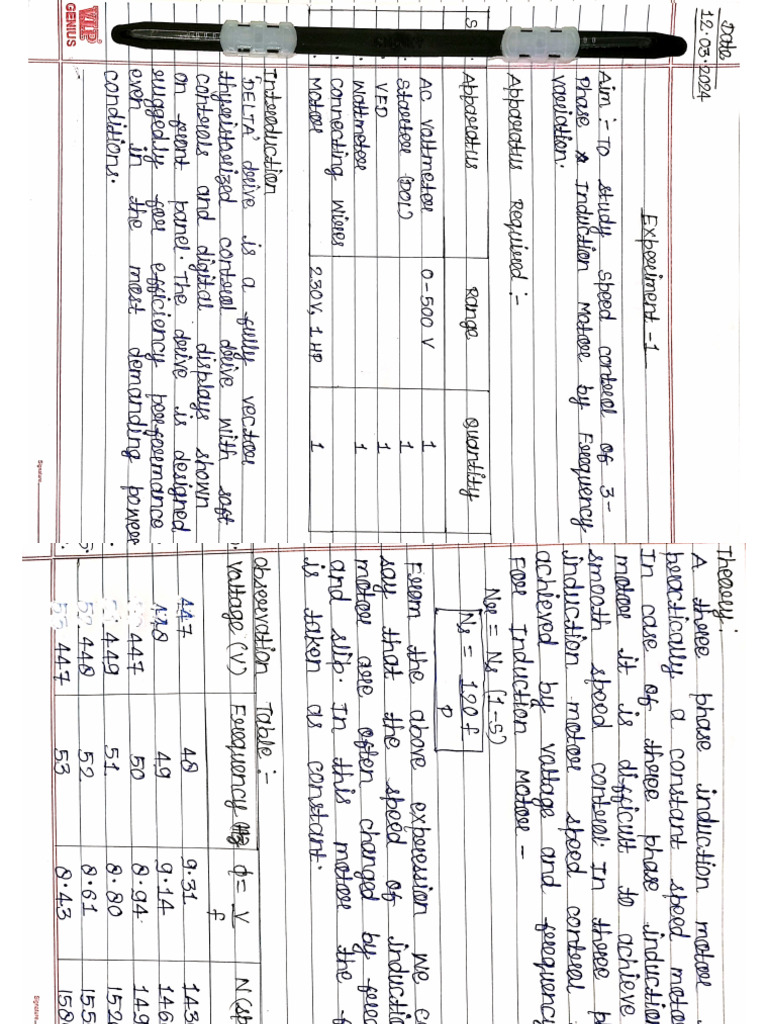 Date
12.03.2024
Experiment -1
Aim :- To study speed control of 3-
Phase Induction Motor by Frequency
variation.
Apparatus Required :-
S. Apparatus Range Quantity
AC voltmeter 0-500 V 1
Starter (DOL) 1
VFD 1
Wattmeter 1
connecting wires
Motor 230V, 1 HP 1
Introduction
'DELTA' drive is a fully vector
thyristorized control drive with soft
controls and digital displays shown
on front panel. The drive is designed
ruggedly for efficiency performance
even in the most demanding power
conditions.
VIP
GENIUS
Signature
Theory:
A three phase induction motor
practically a constant speed motor
In case of three phase induction
motor it is difficult to achieve
smooth speed control. In three p
induction motor speed control
achieved by voltage and frequency
For Induction Motor -
Nr = Ns (1-S)
Ns = 120 f
P
From the above expression we c
say that the speed of inductio
motor are often changed by freq
and slip. In this motor the f
is taken as constant.
Observation Table :-
Voltage (V) Frequency (Hz) φ = V N (sp
f
447 48 9.31 143
448 49 9.14 146
447 50 8.94 149
449 51 8.80 152
448 52 8.61 155
447 53 8.43 158
Signature